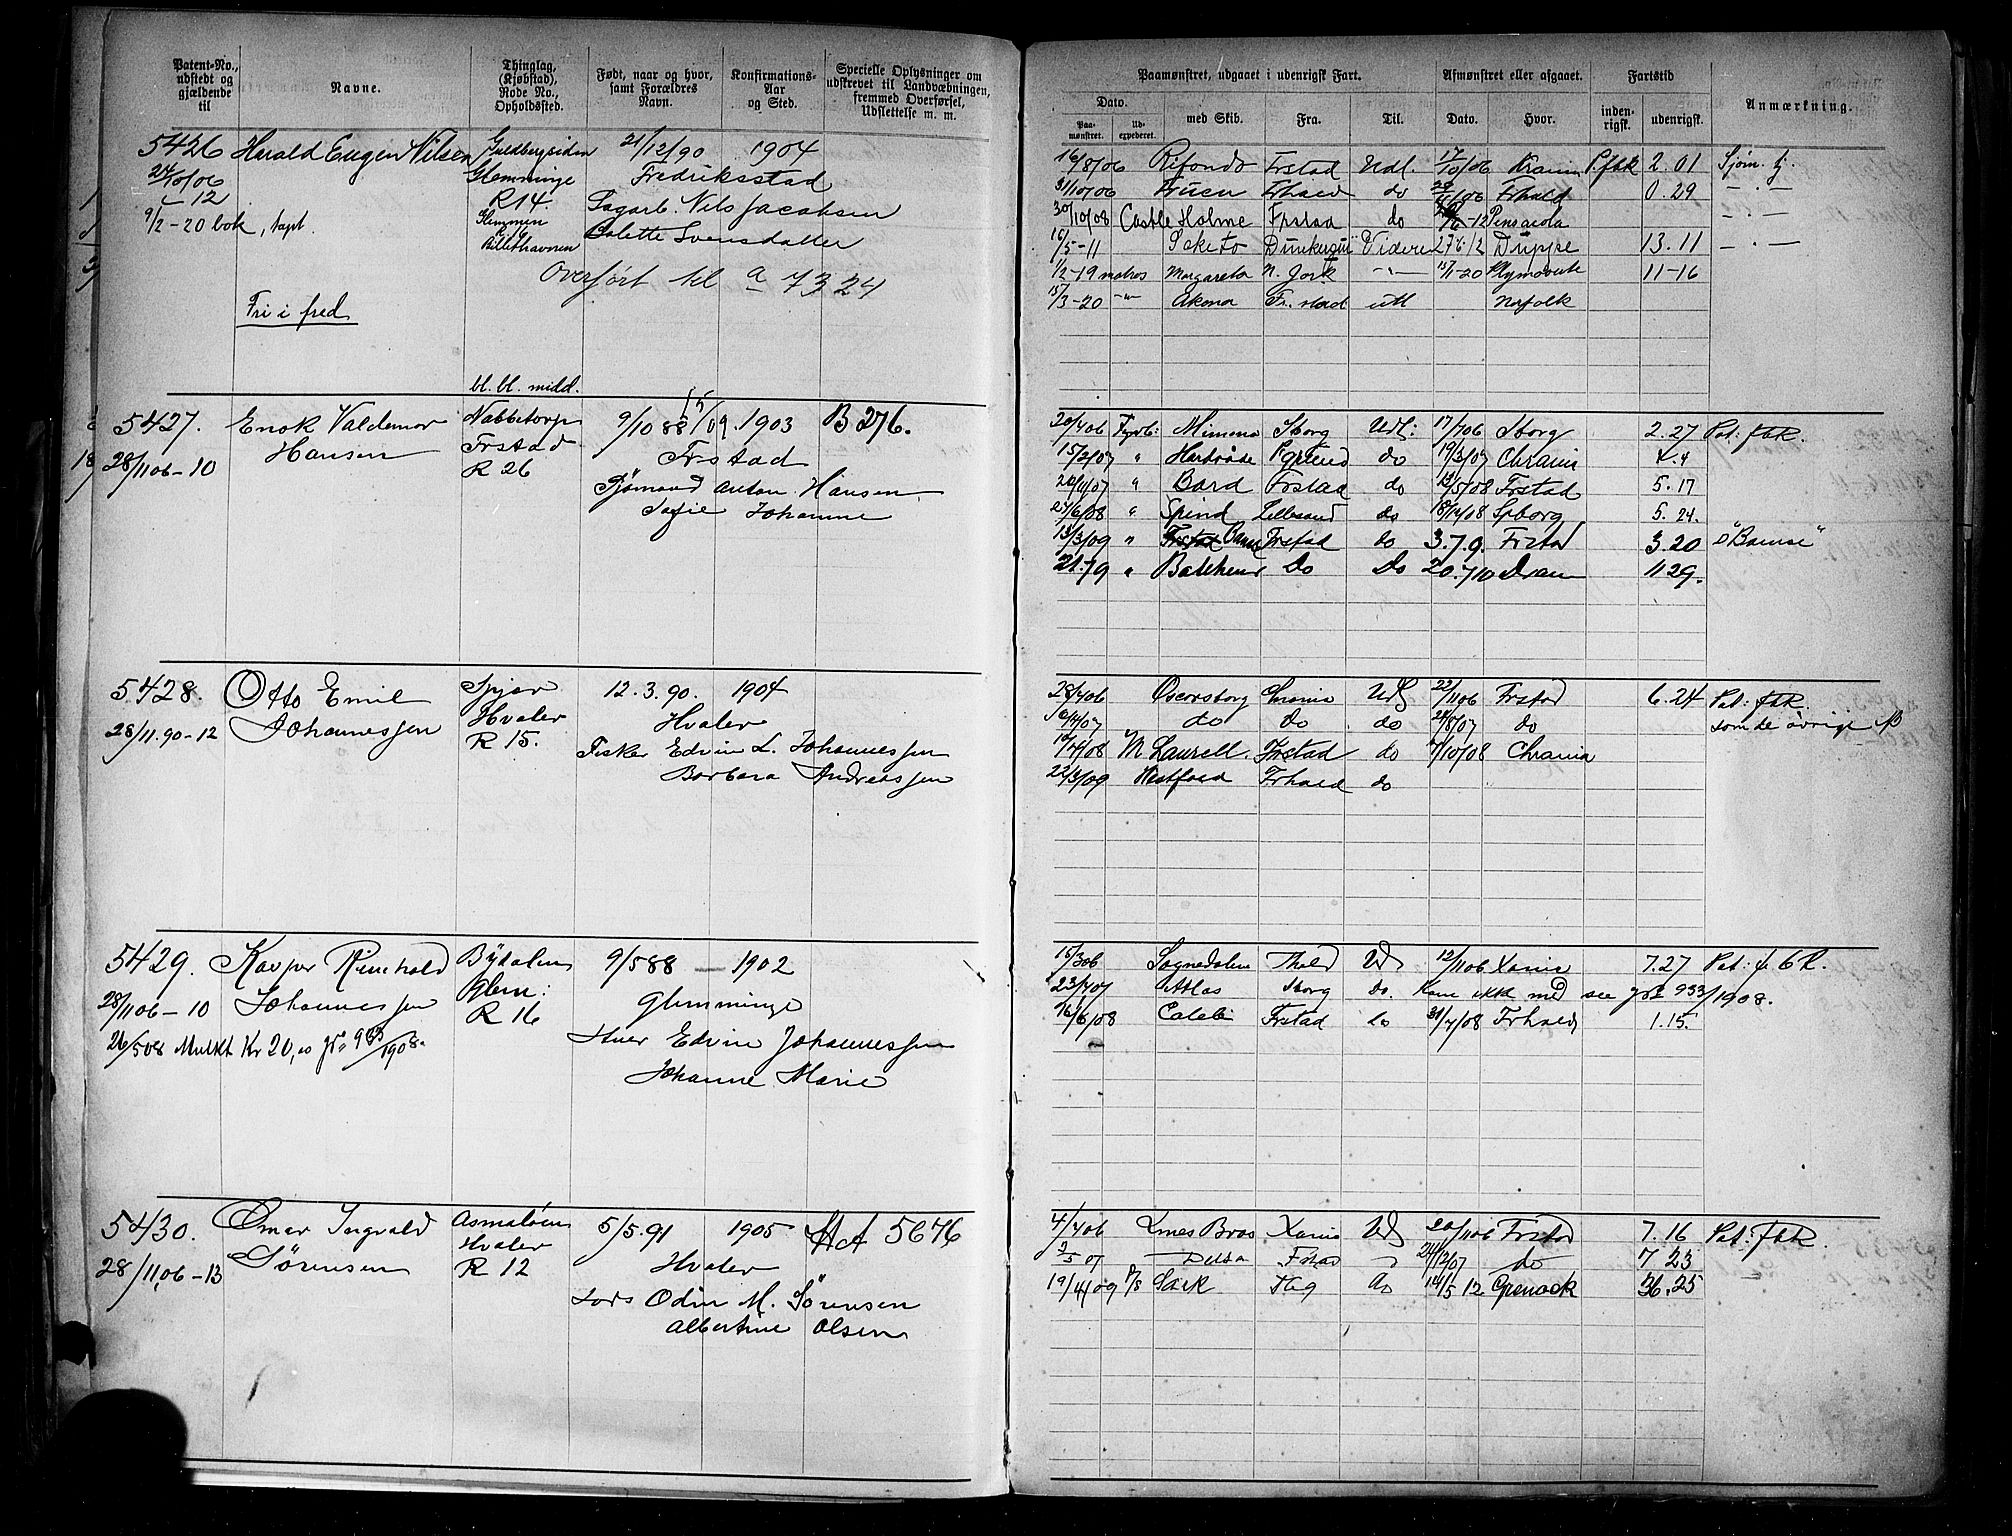 Patent-No., udstedt og gjældende til
Navne.
Thinglag, (Kjøbstad), Rode No., Opholdssted.
Født, naar og hvor, samt Forældres Navn.
Konfirmations-Aar og Sted.
Specielle Oplysninger om udskrevet til Landvæbningen, fremmed Overførsel, Udslettelse m. m.
5426 Harald Eugen Nilsen Guldbergsiden 21/12/90 1904
24/10/06 Glemminge Fredriksstad
— 12 R 14. Sagarb. Nils Jacobsen
9/2-20 bok, tapt. Glemmen Colette Svensdatter
Overført til a 7324
Fri i fred
bl. bl. midd.
5427. Enok Valdemar Nabbetorp 9/10 88 15/09. 1903 B 276.
28/11 06 – 10 Hansen Frstad Frstad
R 26 Sjømand Anton Hansen
Sofie Johanne
5428. Otto Emil Spjær 12. 3. 90. 1904
28/11. 90 – 12 Johannessen Hvaler Hvaler
R 15. Fisker Edvin L. Johannessen
Barbara Andreassen
5429. Kasper Reinhold Bydalen 9/5 88 — 1902
28/11 06 – 10 Johannessen Glem: Glemminge
R 16
26/5 08 Mulkt Kr 20,00 jr. 933/1908. Edvin Johannessen
Johanne Marie
5430. Omar Ingvald Asmaløen 5/5. 91 1905 A 5676
28/11, 06 – 13 Sørensen Hvaler Hvaler
R 12 Lods Odin M. Sørensen
Albertine Olsen
Paamønstret, udgaaet i udenrigsk Fart.
Afmønstret eller afgaaet.
Fartstid
Anmærkning.
Dato.
Paa-mønstret.
Ud-expederet.
med Skib.
Fra.
Til.
Dato.
Hvor.
inden-rigsk.
udenrigsk.
16/8/06 Rifondo Frstad Udl. 17/10/06 Krania P. fbk 2. 01 Sjøm. fj.
31/10/06 Fruen Frhald do 29/11/06 Frhald 0. 29 — " —
30/10/08 Castle Holme Frstad do 12 Pensacola — " —
16/5-11 Saketo Dunkerque Videre 27/6 12 Dieppe 13. 11 — " —
1/2-19 matros Margareta N. Jork — " — 15/1-20 Plymouth 11-16
15/3-20 — " — Akona Fr.stad utl Norfolk
20/4 06 Fyrb: Mimona Sborg Udl: 17/7 06 Sborg 2. 27 Pat: fbk.
15/2/07 " Hardråde do 19/3/07 Chrania 4. 4
20/11/07 " Bard Frstad do 12/5/08 Frstad 5. 17
27/6/08 " Spind Lillesand do 18/12/08 Spborg 5. 24.
13/3/09 " Frstad do 3. 7. 9. Frstad 3. 20 "Bamse"
21. 7/9 " Do Do 20. 7/10 Dram 11 29.
28/4 06 Oscarsborg Chrania Udl 22/11 06 Frstad 6. 24 Pat: fbk.
do do do 24/8/07 do som de øvrige
12/4/08 M Laurell. Frstad do 7/10/08 Chrania
22/3/09 Vestfold Frhald do
15/3 06 Sognedalen Thold Ud 12/11 06 Xania 7. 27
23/4/07 Atlas Sborg do. Kom ikke med see jr 933/1908.
16/6/08 Caleb Frstad do 31/7/08 Frhald 1. 15.
4/4 06 Knes Bros Xania Ud 20/11 06 Frstad 7. 16 Pat: fbk.
3/5 07 Delta Fstad 24/12/07 do 7 23
19/4/09 Sark do 14/5 12 Grenock 36. 25